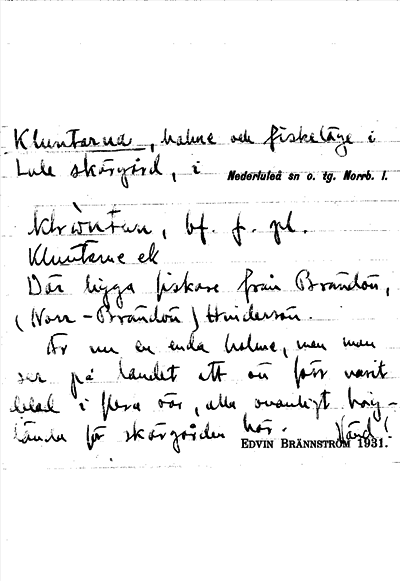 Kluntarna, holme och fiskeläge i
Lule skärgård, i Nederluleå sn o. tg. Norrb. l.
bf. f. pl.
Kluntarne ek
Där ligga fiskare från Brändön,
(Norr-Brändön) Hindersön.
Är nu en enda holme, men man
ser på landet att ön förr varit
delad i flera öar, alla ovanligt hög-
lända för skärgården här.
EDVIN BRÄNNSTRÖM 1931.